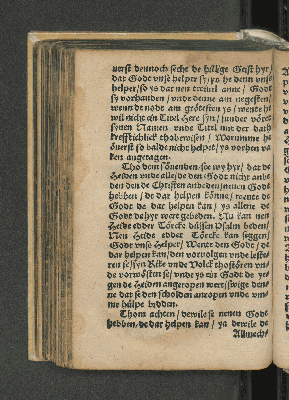 uerst dennoch seche de hillige Geist hyr /
dat Godt vnse helper sy / ya he denn vnse
helper / so ys dar nen trwuel anne / Godt
sy vorhanden / vnde denne am negesten /
wenn de nodt am grötesten ys / wente he
wil nicht ein Titel Here syn / sunder vöret
synen Namen vnde Titel mit der dath
krefftichlick thobewisen / Worumme he
öuerst so balde nicht helpet / ys vorhen
ken angetagen.
Tho dem söuenden see wy hyr / dat de
Heiden vnde alle / de den Godt nicht anbe
den den de Christen anbeden / nenen Godt
hebben / de dar helpen könne / wente de
Godt de dar helpen kan / ys allene de
Godt de hyr wert geheuen. Nu kan nen
Heide edder Törcke dissen Psalm beden /
Nen Heide edder Törcke kan seggen /
Godt vnse Helper / Wente den Godt / de
dar helpen kan / den voruolgen vnde leste-
ren se / syn Rike vnde Volck thostören vnd
de vorwösten se / vnde ys ein Godt de ye-
gen de Heiden angeropen wert / iswige denne
dat se den scholden anropen vnde vm-
me hülpe bidden.
Thom achten / dewile se nenen Godt
hebben / de dar helpen kan / ya dewile de
Allmech-